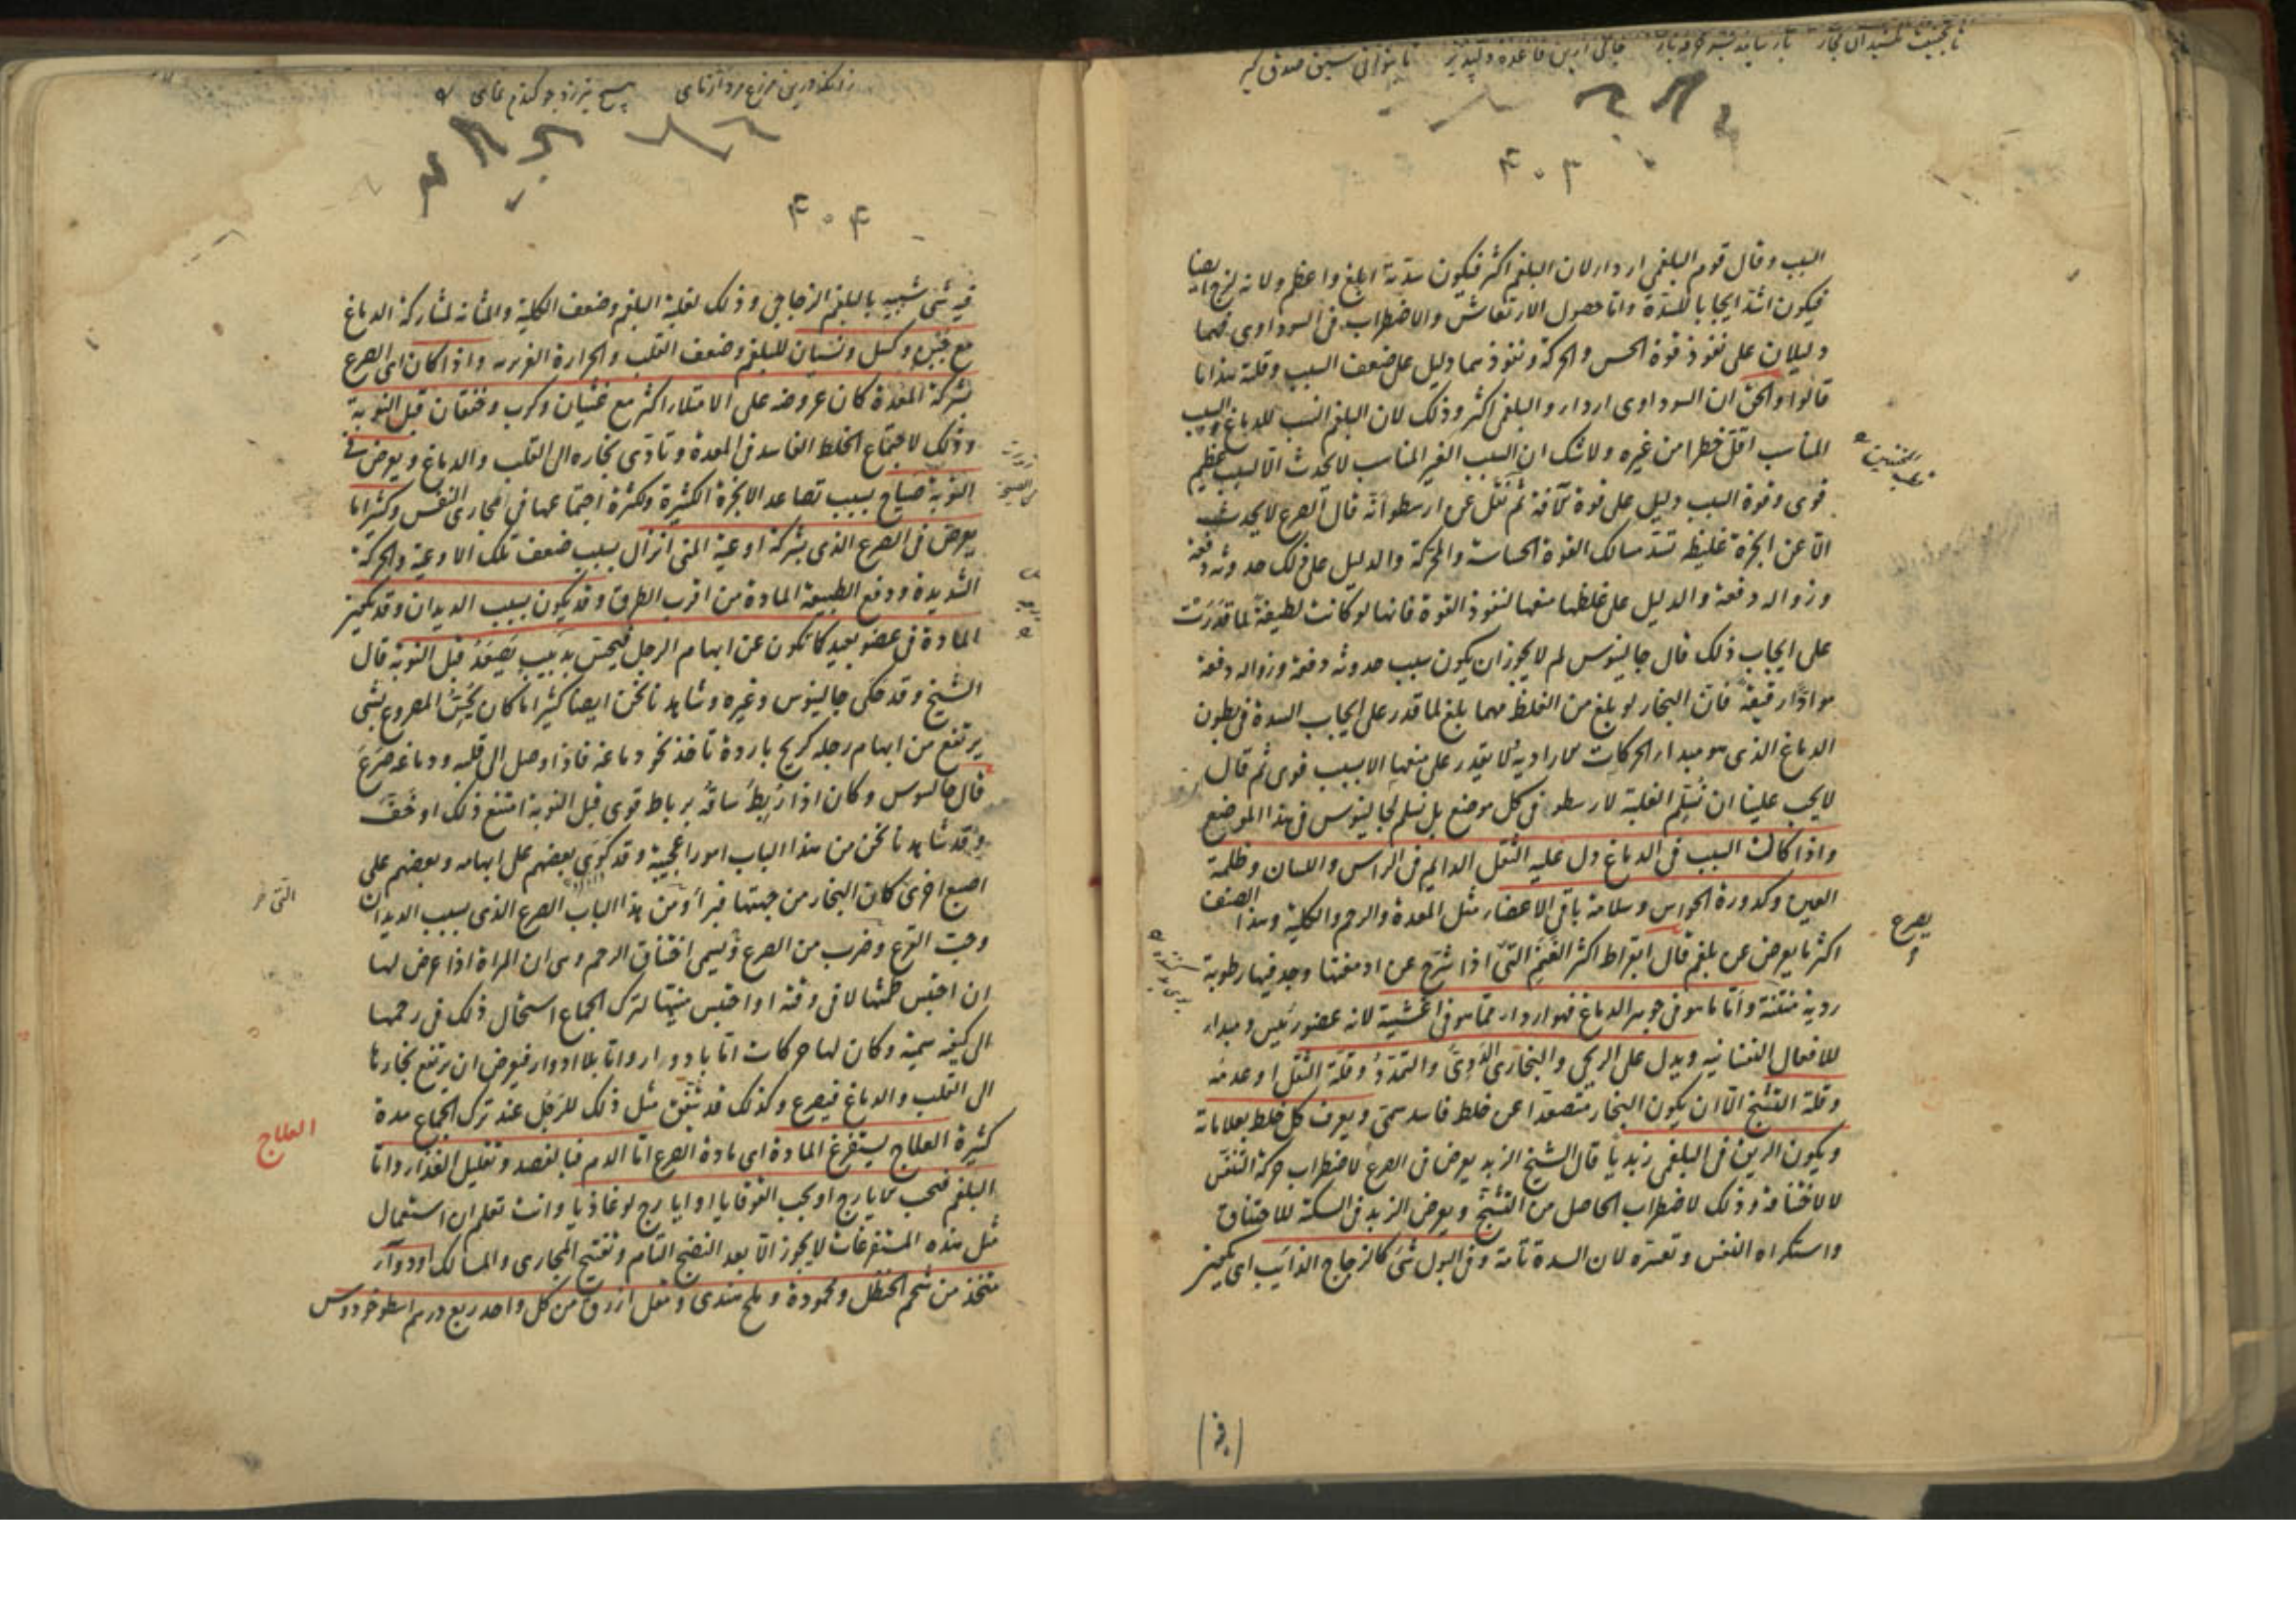 ٤٠٣
السبب وقال قوم البلغمي اردأ لان البلغم اكثر فيكون سدته ابلغ واعظم ولانه لزج ايضا
فيكون اشد ايجابا للسدة واما حصول الارتعاش والاضطراب في السوداوي فهما
دليلان على نفوذ قوة الحس والحركة ونفوذهما دليل على ضعف السبب وقلته هذا ما
قالوا والحق ان السوداوي اردا والبلغمي اكثر وذلك لان البلغم انسب للدماغ والسبب
المناسب اقل خطرا من غيره ولا شك ان السبب الغير المناسب لا يحدث الا لسبب عظيم
قوي وقوة السبب دليل على قوة الآفة ثم نقل عن ارسطو انه قال الصرع لا يحدث
الا عن ابخرة غليظة تسد مسالك القوة الحساسة والمحركة والدليل على ذلك حدوثه دفعة
وزواله دفعة والدليل على غلظها منعها لنفوذ القوة فانها لو كانت لطيفة لما قدرت
على ايجاب ذلك قال جالينوس لم لا يجوز ان يكون سبب حدوثه دفعة وزواله دفعة
مواد رقيقة فان البخار لو بلغ من الغلظ مهما بلغ لما قدر على ايجاب السدة في بطون
الدماغ الذي هو مبدأ الحركات الارادية لا يقدر على منعها الا بسبب قوي ثم قال
لا يجب علينا ان نسلم الغلبة لارسطو في كل موضع بل نسلم لجالينوس في هذا الموضع
واذا كانت السبب في الدماغ دل عليه الثقل الدايم في الراس واللسان وظلمة
العين وكدورة الحواس وسلامة باقي الاعضاء مثل المعدة والرحم والكلية وهذا الصنف
اكثر ما يعرض عن بلغم قال ابقراط اكثر الغنم التي اذا شرح عن ادمغتها وجد فيها رطوبة
يصرع
ردية منتنة واما ما هو في جوهر الدماغ فهو اردأ مما هو في اغشيته لانه عضو رئيس ومبدأ
للافعال النفسانية ويدل على الريحي والبخاري الدوي والتمدد وقلة الثقل او عدمه
وقلة التشنج الا ان يكون البخار متصعدا عن خلط فاسد سمي ويعرف كل خلط بعلاماته
ويكون الريق في البلغمي زبديا قال الشيخ الزبد يعرض في الصرع لاضطراب حركة التنفس
لا لاختناقه وذلك لاضطراب الحاصل من التشنج ويعرض الزبد في السكتة للاختناق
واستكراه النفس وتعسره لان السدة تامة وفي البول شئ كالزجاج الذائب اي يتميز
٤٠٤
فيه شئ شبيه بالبلغم الزجاجي وذلك لغلبة البلغم وضعف الكلية والمثانة لمشاركة الدماغ
مع جبن وكسل ونسيان للبلغم وضعف القلب والحرارة الغريزية واذا كان اي الصرع
بشركة المعدة كان عروضه على الامتلاء اكثر مع غثيان وكرب وخفقان قبل النوبة
وذلك لاجتماع الخلط الفاسد في المعدة وتأدي بخاره الى القلب والدماغ ويعرض في
النوبة صياح بسبب تصاعد الابخرة الكثيرة وكثرة اجتماعها في مجاري النفس وكثيرا ما
يعرض في الصرع الذي بشركة اوعية المني انزال بسبب ضعف تلك الاوعية والحركة
الشديدة ودفع الطبيعة المادة من اقرب الطرق وقد يكون بسبب الديدان وقد يتميز
المادة في عضو بعيد كما تكون عن ابهام الرجل فيحس بدبيب يصعد قبل النوبة قال
الشيخ وقد حكى جالينوس وغيره وشاهدنا نحن ايضا كثيرا ما كان يحس المصروع بشئ
يرتفع من ابهام رجله كريح باردة تاخذ نحو دماغه فاذا وصل الى قلبه ودماغه صرع
قال جالينوس وكان اذا ربط ساقه برباط قوي قبل النوبة امتنع ذلك او خف
وقد شاهدنا نحن من هذا الباب امورا عجيبة وقد كوى بعضهم على ابهامه وبعضهم على
اصبع اخرى كان البخار من جهتها فبرأ ومن هذا الباب الصرع الذي بسبب الديدان
وحب القرع وضرب من الصرع يسمى اختناق الرحم وهي ان المراة اذا عرض لها
ان احتبس طمثها لا في وقته او احتبس منيها لترك الجماع استحال ذلك في رحمها
الى كيفية سمية وكان لها حركات اما بادوار واما بلا ادوار فيعرض ان يرتفع بخارها
الى القلب والدماغ فيصرع وكذلك قد يتفق مثل ذلك للرجل عند ترك الجماع مدة
العلاج
كثيرة العلاج يستفرغ المادة اي مادة الصرع اما الدم فبالفصد وتقليل الغذاء واما
البلغم فبحب الايارج او بحب القوقايا او ايارج لوغاذيا وانت تعلم ان استعمال
مثل هذه المستفرغات لا يجوز الا بعد النضج التام وتفتيح المجاري والمسالك او دواء
متخذ من شحم الحنظل ومحمودة وملح هندي ومقل ازرق من كل واحد ربع درهم اسطوخودوس